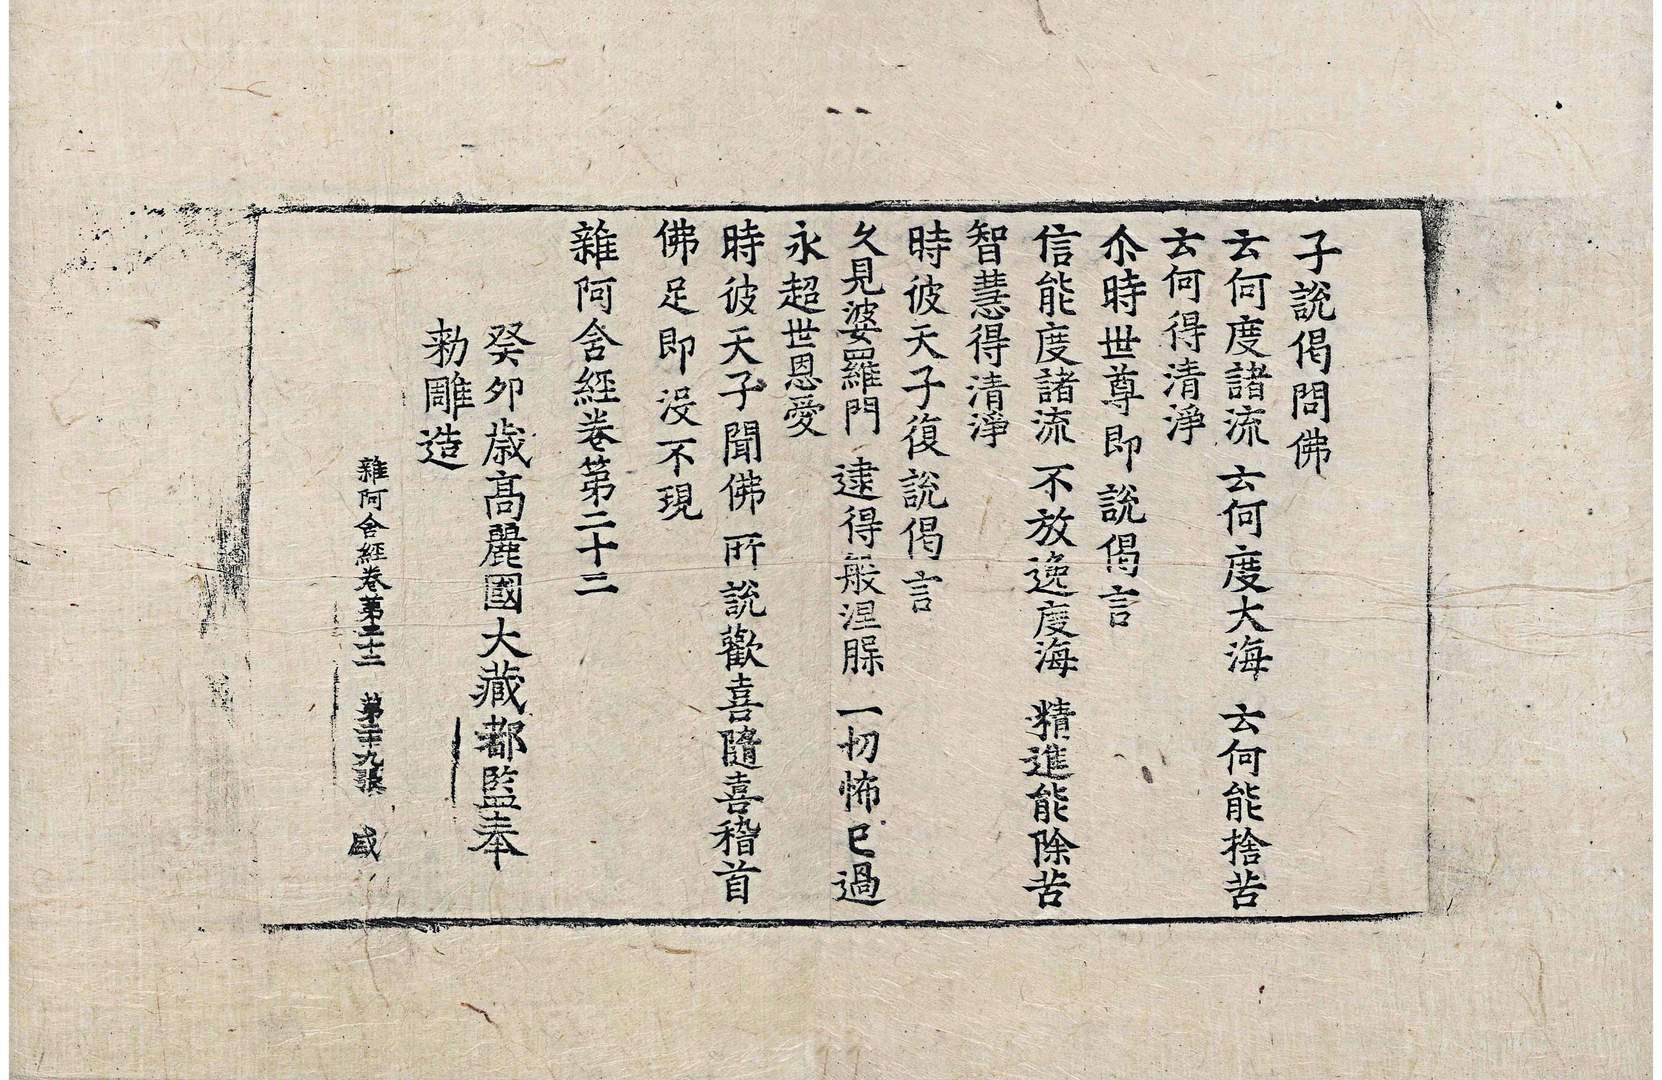 子說偈問佛
云何度諸流 云何度大海 云何能捨苦
云何得清淨
尒時世尊即說偈言
信能度諸流 不放逸度海 精進能除苦
智慧得清淨
時彼天子復說偈言
久見婆羅門 逮得般涅槃 一切怖已過
永超世恩愛
時彼天子聞佛所說歡喜隨喜稽首
佛足即没不現
雜阿含經卷第二十二
癸卯歳高麗國大藏都監奉
勑雕造
雜阿含經卷第二十二 第二十九張 盛